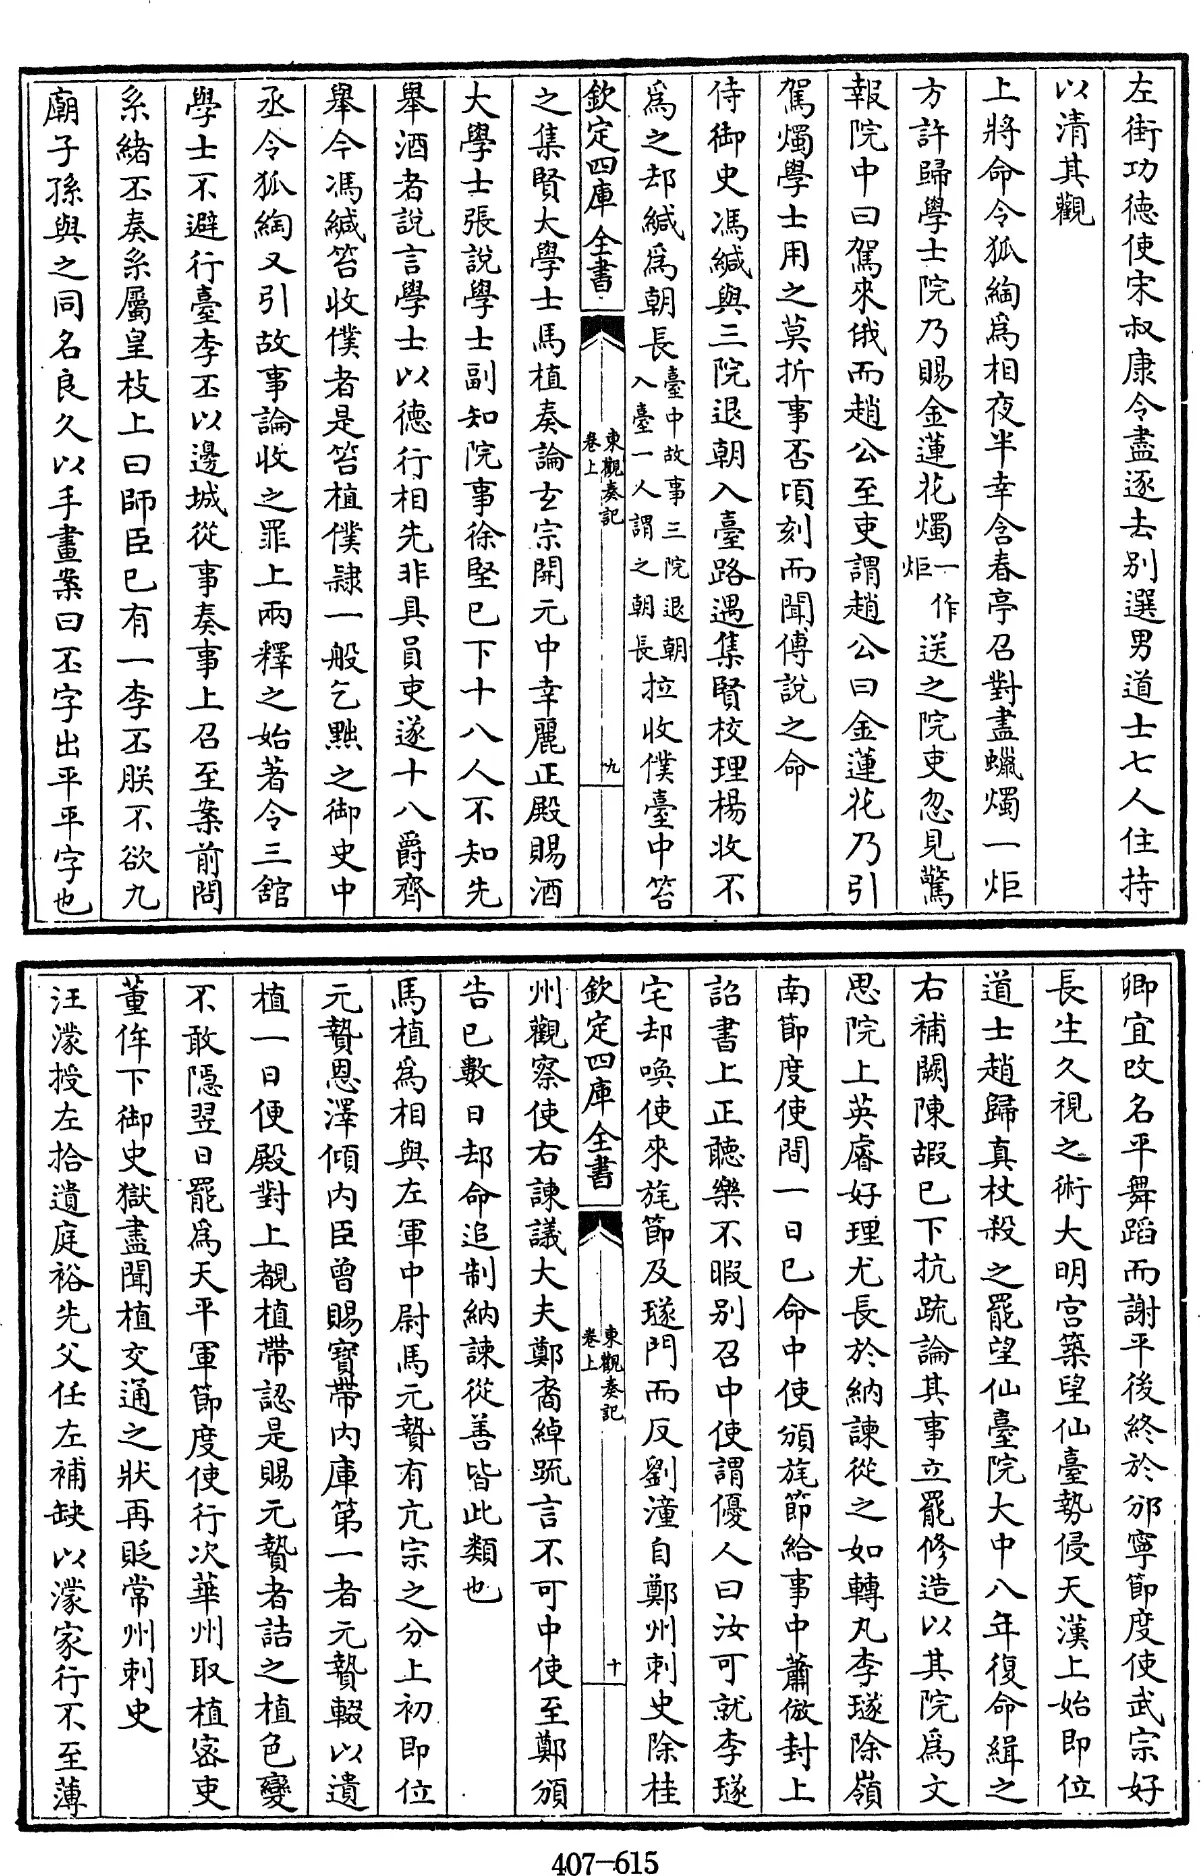 左街功徳使宋叔康令盡逐去别選男道士七人住持
以清其觀
上將命令狐綯爲相夜半幸含春亭召對盡蠟燭一炬
方許歸學士院乃賜金蓮花燭一作炬送之院吏忽見驚
報院中曰駕來俄而趙公至吏謂趙公曰金蓮花乃引
駕燭學士用之莫折事否頃刻而聞傅説之命
侍御史馮緘與三院退朝入臺路遇集賢校理楊收不
爲之却緘爲朝長臺中故事三院退朝入臺一人謂之朝長拉收僕臺中笞
欽定四庫全書
東觀奏記
卷上
九
之集賢大學士馬植奏論玄宗開元中幸麗正殿賜酒
大學士張説學士副知院事徐堅已下十八人不知先
舉酒者説言學士以德行相先非具員吏遂十八爵齊
舉今馮緘笞收僕者是笞植僕隷一般乞黜之御史中
丞令狐綯又引故事論收之罪上兩釋之始著令三舘
學士不避行臺李丕以邊城從事奏事上召至案前問
系緒丕奏系屬皇枝上曰師臣已有一李丕朕不欲九
廟子孫與之同名良久以手畫案曰丕字出平平字也
卿宜改名平舞蹈而謝平後終於邠寧節度使武宗好
長生久視之術大明宫築望仙臺勢侵天漢上始即位
道士趙歸真杖殺之罷望仙臺院大中八年復命緝之
右補闕陳嘏已下抗疏論其事立罷修造以其院爲文
思院上英睿好理尤長於納諫從之如轉丸李璲除嶺
南節度使間一日已命中使頒旄節給事中蕭倣封上
詔書上正聽樂不暇别召中使謂優人曰汝可就李璲
宅却喚使來旄節及璲門而反劉潼自鄭州刺史除桂
州觀察使右諫議大夫鄭裔綽疏言不可中使至鄭頒
欽定四庫全書
東觀奏記
卷上
十
告已數日却命追制納諫從善皆此類也
馬植爲相與左軍中尉馬元贄有亢宗之分上初即位
元贄恩澤傾内臣曾賜寶帶内庫第一者元贄輟以遺
植一日便殿對上覩植帶認是賜元贄者詰之植色變
不敢隱翌日罷爲天平軍節度使行次華州取植密吏
董侔下御史獄盡聞植交通之狀再貶常州刺史
汪濛授左拾遺庭裕先父任左補缺以濛家行不至薄
407-615